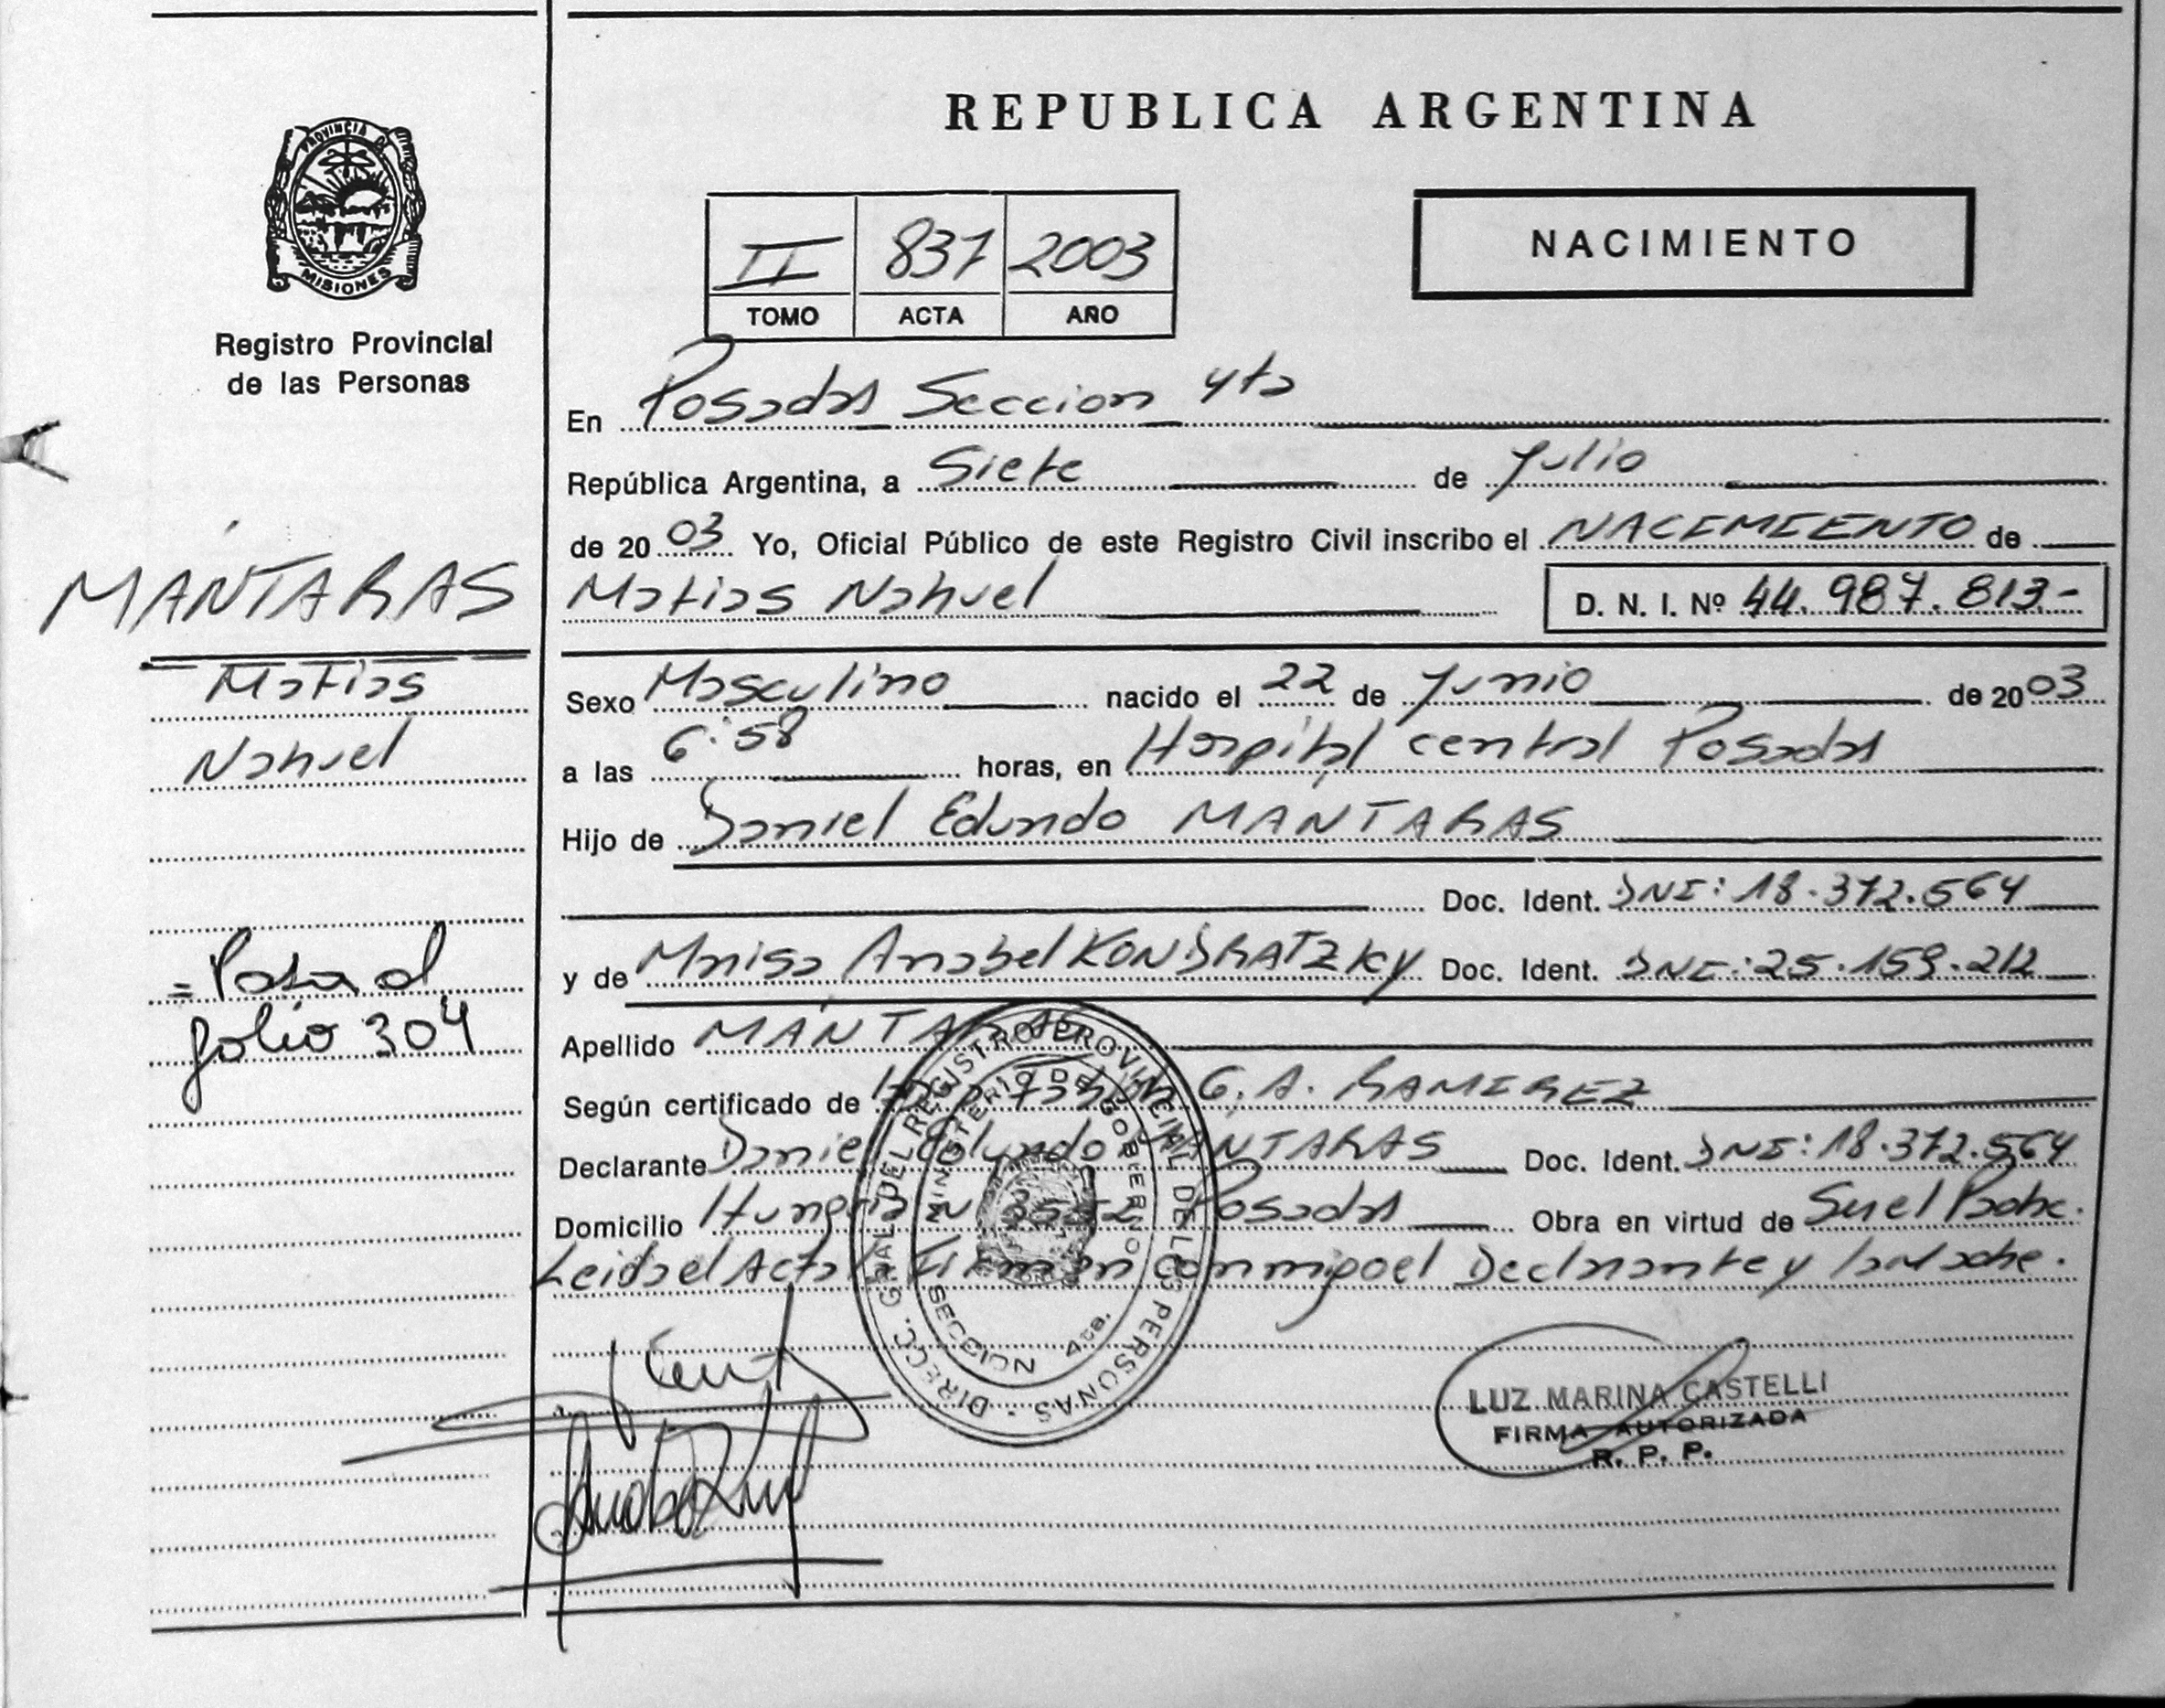 REPUBLICA ARGENTINA
PROVINCIA DE
MISIONES
Registro Provincial
de las Personas
II 837 2003
TOMO ACTA AÑO
NACIMIENTO
En Posadas Seccion 4ta
República Argentina, a Siete de Julio
de 2003 Yo, Oficial Público de este Registro Civil inscribo el NACIMIENTO de
Matias Nahuel D. N. I. Nº 44.987.813.-
MÁNTARAS
Matias
Nahuel
= Pasa al
folio 304
Sexo Masculino nacido el 22 de Junio de 2003
a las 6:58 horas, en Hospital central Posadas
Hijo de Daniel Edundo MÁNTARAS
Doc. Ident. DNI: 18.372.564
y de Marisa Anabel KONDRATZKY Doc. Ident. DNI: 25.159.212
Apellido MÁNTARAS
Según certificado de G. A. RAMIREZ
Declarante Daniel MANTARAS Doc. Ident. DNI: 18.372.564
Domicilio Hungria N Posadas Obra en virtud de Ser el Padre.
Leida el Acta Firman conmigo el Declarante y la Madre.
DIRECC. GRAL DEL REGISTRO PROVINCIAL DE LAS PERSONAS
MINISTERIO DE GOBIERNO
SECCION 4ta.
LUZ MARINA CASTELLI
FIRMA AUTORIZADA
R. P. P.